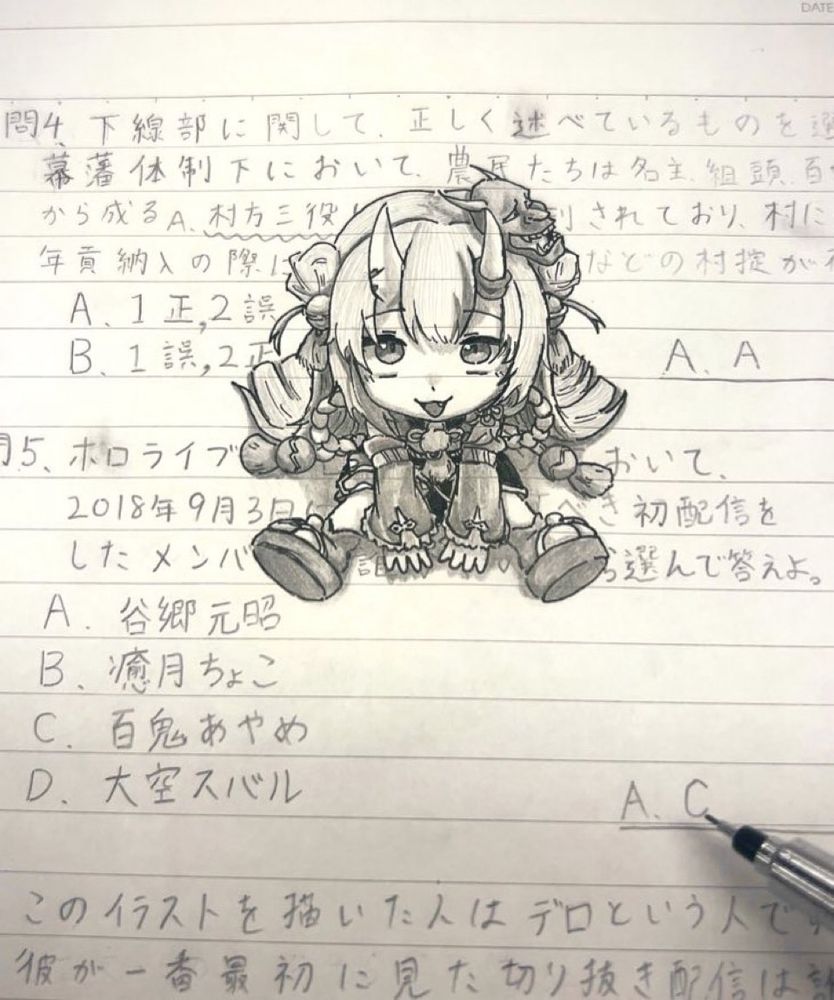 DATE
問4. 下線部に関して、正しく述べているものを選
幕藩体制下において、農民たちは名主、組頭、百
から成るA.村方三役 されており、村に
年貢納入の際に などの村掟が
A. 1正,2誤
B. 1誤,2正
A. A
問5、ホロライブ おいて、
2018年9月3日 べき初配信を
したメンバ 誰 ら選んで答えよ。
A. 谷郷元昭
B. 癒月ちょこ
C. 百鬼あやめ
D. 大空スバル
A. C
このイラストを描いた人はデロという人で
彼が一番最初に見た切り抜き配信は